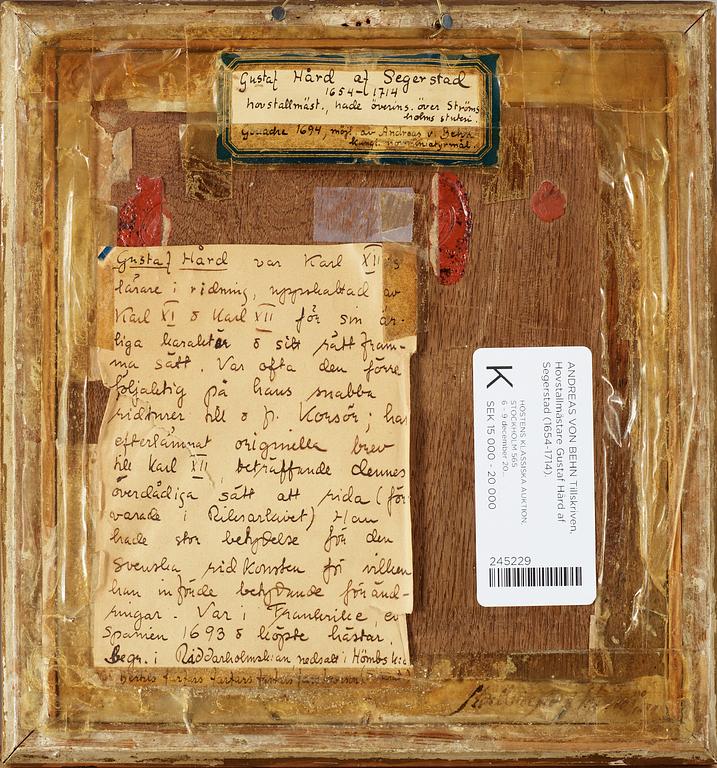 Gustaf Hård af Segerstad
1654-1714
hovstallmäst., hade överins. över Ströms
holms stuteri.
Gouache 1694, möjl. av Andreas v. Behn
kungl. hovminiatyrmål.
Gustaf Hård var Karl XII's
lärare i ridning, uppskattad av
Karl XI & Karl XII för sin är-
liga karaktär & sitt rätt fram-
ma sätt. Var ofta den förre
följaktig på hans snabba
ridturer till & fr. Korsör; har
efterlämnat originella brev
till Karl XII, beträffande dennes
överdådiga sätt att rida (för
varade i Riksarkivet) Han
hade stor betydelse för den
svenska ridkonsten för vilken
han införde betydande föränd-
ringar. Var i Frankrike,
Spanien 1693 & köpte hästar.
Begr. i Riddarholmskian nedsatt i
ANDREAS VON BEHN Tillskriven,
Hovstallmästare Gustaf Hård af
Segerstad (1654-1714).
HÖSTENS KLASSISKA AUKTION,
STOCKHOLM 565
6 - 9 december 20
K SEK 15 000 - 20 000
245229